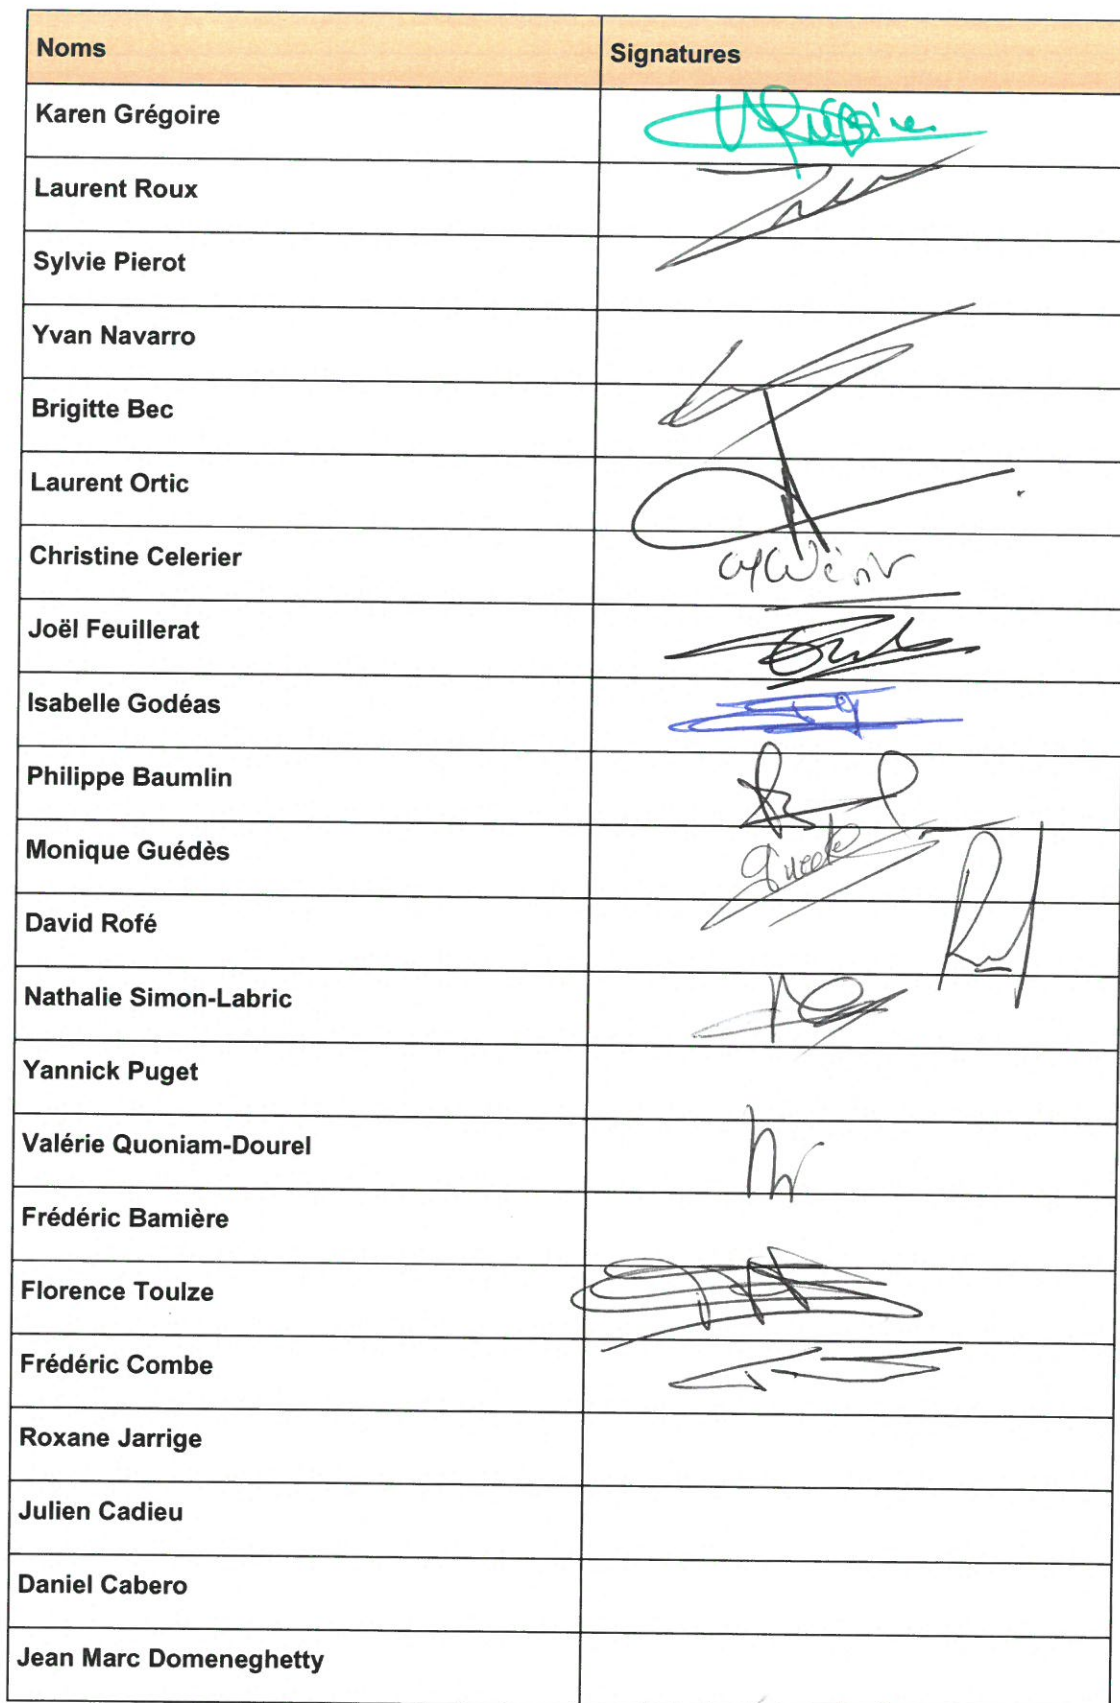 Noms Signatures
Karen Grégoire
Laurent Roux
Sylvie Pierot
Yvan Navarro
Brigitte Bec
Laurent Ortic
Christine Celerier
Joël Feuillerat
Isabelle Godéas
Philippe Baumlin
Monique Guédès
David Rofé
Nathalie Simon-Labric
Yannick Puget
Valérie Quoniam-Dourel
Frédéric Bamière
Florence Toulze
Frédéric Combe
Roxane Jarrige
Julien Cadieu
Daniel Cabero
Jean Marc Domeneghetty